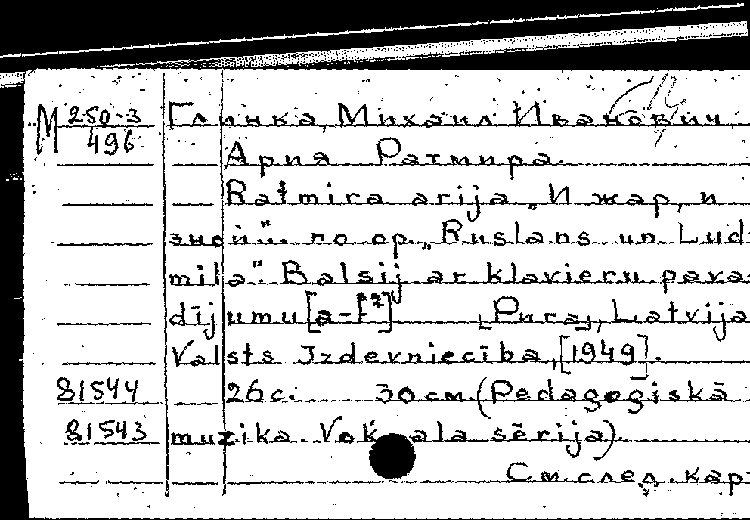 М 250-3 Глинка, Михаил Иванович.
496 Ария Ратмира.
Ratmira arija „И жар, и
зной". no op. „Ruslans un Lud-
mila". Balsij ar klavieru pava-
dījumu [a-f²] [Purs], Latvijas
Valsts Izdevniecība, [1949].
81544 26 с. 30 см. (Pedagoģiskā
81543 muzika. Vokala sērija).
См. след. кар